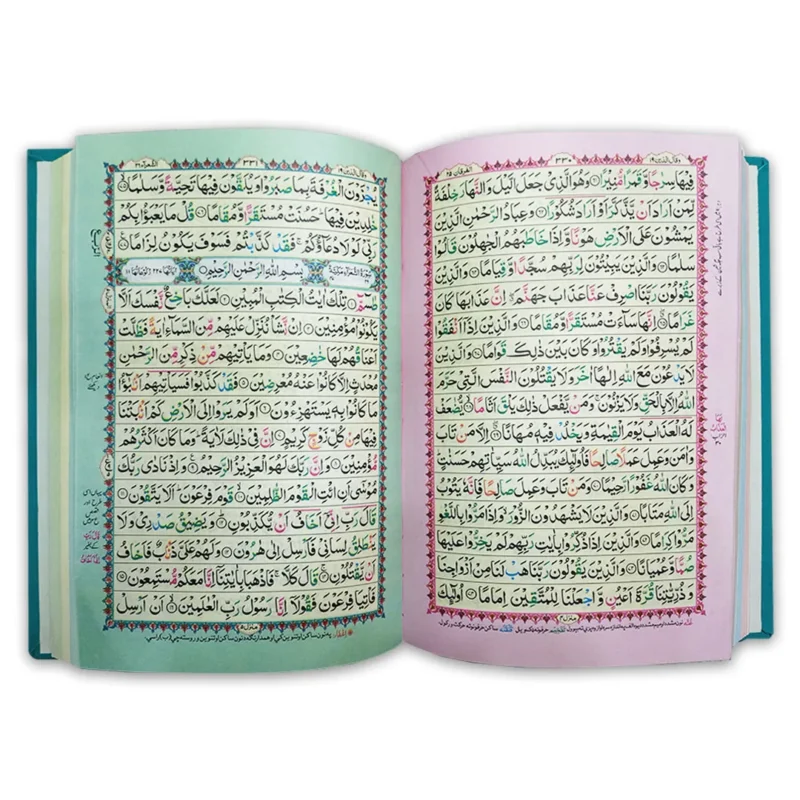 وقال الذین ۱۹
۳۳۰
الفرقان ۲۵
فِیْهَا سِرٰجًا وَّقَمَرًا مُّنِیْرًا وَهُوَ الَّذِیْ جَعَلَ الَّیْلَ وَالنَّهَارَ خِلْفَةً
لِّمَنْ اَرَادَ اَنْ یَّذَّكَّرَ اَوْ اَرَادَ شُكُوْرًا وَعِبَادُ الرَّحْمٰنِ الَّذِیْنَ
یَمْشُوْنَ عَلَی الْاَرْضِ هَوْنًا وَّاِذَا خَاطَبَهُمُ الْجٰهِلُوْنَ قَالُوْا
سَلٰمًا وَالَّذِیْنَ یَبِیْتُوْنَ لِرَبِّهِمْ سُجَّدًا وَّقِیَامًا وَالَّذِیْنَ
یَقُوْلُوْنَ رَبَّنَا اصْرِفْ عَنَّا عَذَابَ جَهَنَّمَ اِنَّ عَذَابَهَا كَانَ
غَرَامًا اِنَّهَا سَآءَتْ مُسْتَقَرًّا وَّمُقَامًا وَالَّذِیْنَ اِذَاۤ اَنْفَقُوْا
لَمْ یُسْرِفُوْا وَلَمْ یَقْتُرُوْا وَكَانَ بَیْنَ ذٰلِكَ قَوَامًا وَالَّذِیْنَ
لَا یَدْعُوْنَ مَعَ اللّٰهِ اِلٰهًا اٰخَرَ وَلَا یَقْتُلُوْنَ النَّفْسَ الَّتِیْ حَرَّمَ
اللّٰهُ اِلَّا بِالْحَقِّ وَلَا یَزْنُوْنَ وَمَنْ یَّفْعَلْ ذٰلِكَ یَلْقَ اَثَامًا یُّضٰعَفْ
لَهُ الْعَذَابُ یَوْمَ الْقِیٰمَةِ وَیَخْلُدْ فِیْهٖ مُهَانًا اِلَّا مَنْ تَابَ
وَاٰمَنَ وَعَمِلَ عَمَلًا صَالِحًا فَاُولٰٓئِكَ یُبَدِّلُ اللّٰهُ سَیِّاٰتِهِمْ حَسَنٰتٍ
وَكَانَ اللّٰهُ غَفُوْرًا رَّحِیْمًا وَمَنْ تَابَ وَعَمِلَ صَالِحًا فَاِنَّهٗ یَتُوْبُ
اِلَی اللّٰهِ مَتَابًا وَالَّذِیْنَ لَا یَشْهَدُوْنَ الزُّوْرَ وَاِذَا مَرُّوْا بِاللَّغْوِ
مَرُّوْا كِرَامًا وَالَّذِیْنَ اِذَا ذُكِّرُوْا بِاٰیٰتِ رَبِّهِمْ لَمْ یَخِرُّوْا عَلَیْهَا
صُمًّا وَّعُمْیَانًا وَالَّذِیْنَ یَقُوْلُوْنَ رَبَّنَا هَبْ لَنَا مِنْ اَزْوَاجِنَا
وَذُرِّیّٰتِنَا قُرَّةَ اَعْیُنٍ وَّاجْعَلْنَا لِلْمُتَّقِیْنَ اِمَامًا اُولٰٓئِكَ
منزل
وقال الذین ۱۹
۳۳۱
الشعرآء ۲۶
یُجْزَوْنَ الْغُرْفَةَ بِمَا صَبَرُوْا وَیُلَقَّوْنَ فِیْهَا تَحِیَّةً وَّسَلٰمًا
خٰلِدِیْنَ فِیْهَا حَسُنَتْ مُسْتَقَرًّا وَّمُقَامًا قُلْ مَا یَعْبَؤُا بِكُمْ
رَبِّیْ لَوْلَا دُعَآؤُكُمْ فَقَدْ كَذَّبْتُمْ فَسَوْفَ یَكُوْنُ لِزَامًا
بِسْمِ اللّٰهِ الرَّحْمٰنِ الرَّحِیْمِ
طٰسٓمّٓ تِلْكَ اٰیٰتُ الْكِتٰبِ الْمُبِیْنِ لَعَلَّكَ بَاخِعٌ نَّفْسَكَ اَلَّا
یَكُوْنُوْا مُؤْمِنِیْنَ اِنْ نَّشَاْ نُنَزِّلْ عَلَیْهِمْ مِّنَ السَّمَآءِ اٰیَةً فَظَلَّتْ
اَعْنَاقُهُمْ لَهَا خٰضِعِیْنَ وَمَا یَاْتِیْهِمْ مِّنْ ذِكْرٍ مِّنَ الرَّحْمٰنِ
مُحْدَثٍ اِلَّا كَانُوْا عَنْهُ مُعْرِضِیْنَ فَقَدْ كَذَّبُوْا فَسَیَاْتِیْهِمْ اَنْۢبٰٓؤُا
مَا كَانُوْا بِهٖ یَسْتَهْزِءُوْنَ اَوَلَمْ یَرَوْا اِلَی الْاَرْضِ كَمْ اَنْۢبَتْنَا
فِیْهَا مِنْ كُلِّ زَوْجٍ كَرِیْمٍ اِنَّ فِیْ ذٰلِكَ لَاٰیَةً وَمَا كَانَ اَكْثَرُهُمْ
مُّؤْمِنِیْنَ وَاِنَّ رَبَّكَ لَهُوَ الْعَزِیْزُ الرَّحِیْمُ وَاِذْ نَادٰی رَبُّكَ
مُوْسٰۤی اَنِ ائْتِ الْقَوْمَ الظّٰلِمِیْنَ قَوْمَ فِرْعَوْنَ اَلَا یَتَّقُوْنَ
قَالَ رَبِّ اِنِّیْۤ اَخَافُ اَنْ یُّكَذِّبُوْنِ وَیَضِیْقُ صَدْرِیْ وَلَا
یَنْطَلِقُ لِسَانِیْ فَاَرْسِلْ اِلٰی هٰرُوْنَ وَلَهُمْ عَلَیَّ ذَنْۢبٌ فَاَخَافُ
اَنْ یَّقْتُلُوْنِ قَالَ كَلَّا فَاذْهَبَا بِاٰیٰتِنَاۤ اِنَّا مَعَكُمْ مُّسْتَمِعُوْنَ
فَاْتِیَا فِرْعَوْنَ فَقُوْلَاۤ اِنَّا رَسُوْلُ رَبِّ الْعٰلَمِیْنَ اَنْ اَرْسِلْ
منزل ۵